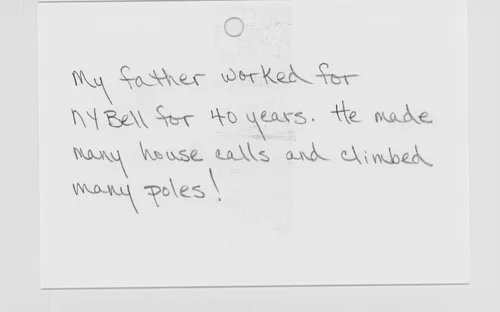 My father worked for
NYBell for 40 years. He made
many house calls and climbed
many poles!